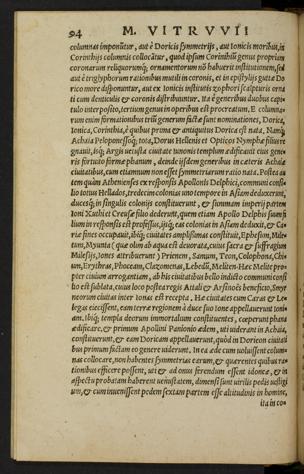 94 M. VITRUVII
columnas imponũtur, aut è Doricis symmetrijs, aut Ionicis moribus, in
Corinthijs columnis collocãtur, quod ipsum Corinthiũ genus propriam
coronarum reliquorumq́; ornamentorum nõ habuerit institutionem, sed
aut è triglyphorum rationibus mutili in coronis, et in epistylijs guttæ Do
rico more disponuntur, aut ex Ionicis institutis zophori scalpturis orna
ti cum denticulis & coronis distribuuntur. Ita è generibus duobus capi-
tulo interposito, tertium genus in operibus est procreatum. E columna-
rum enim formationibus triũ generum factæ sunt nominationes, Dorica,
Ionica, Corinthia, è quibus prima & antiquitus Dorica est nata. Namq́;
Achaia Peloponessoq́; tota, Dorus Hellenis et Opticos Nymphæ filius re
gnauit, isq́; Argis uetusta ciuitate Iunonis templum ædificauit eius gene-
ris fortuito formæ phanum, deinde ijsdem generibus in cæteris Achaiæ
ciuitatibus, cum etiamnum non esset symmetriarum ratio nata. Postea au
tem quàm Athenienses ex responsis Apollinis Delphici, communi consi-
lio totius Hellados, tredecim colonias uno tempore in Asiam deduxerunt,
ducesq́; in singulis colonijs constituerunt, & summam imperij partem
Ioni Xuthi et Creusæ filio dederunt, quem etiam Apollo Delphis suum fi
lium in responsis est professus, isq́; eas colonias in Asiam deduxit, & Ca-
riæ fines occupauit, ibiq́; ciuitates amplissimas constituit, Ephesum, Mile-
tum, Myunta (quæ olim ab aqua est deuorata, cuius sacra & suffragium
Milesijs, Iones attribuerunt) Prienem, Samum, Teon, Colophona, Chi-
um, Erythras, Phoceam, Clazomenas, Lebedũ, Meliten. Hæc Melite pro-
pter ciuium arrogantiam, ab his ciuitatibus bello indicto communi consi
lio est sublata, cuius loco postea regis Attali & Arsinoës beneficio, Smyr
neorum ciuitas inter Ionas est recepta. Hæ ciuitates cum Caras & Le-
legas eiecissent, eam terræ regionem à duce suo Ione appellauerunt Ioni-
am. Ibiq́; templa deorum immortalium constituentes, cœperunt phana
ædificare, & primum Apollini Panionio ædem, uti uiderant in Achaia,
constituerunt, & eam Doricam appellauerunt, quòd in Dorieon ciuitati
bus primum factam eo genere uiderunt. In ea æde cum uoluissent colum-
nas collocare, non habentes symmetrias earum, & quærentes quibus ra-
tionibus efficere possent, uti & ad onus ferendum essent idoneæ, & in
aspectu probatam haberent uenustatem, dimensi sunt uirilis pedis uestigi
um, & cum inuenissent pedem sextam partem esse altitudinis in homine,
ita in co-